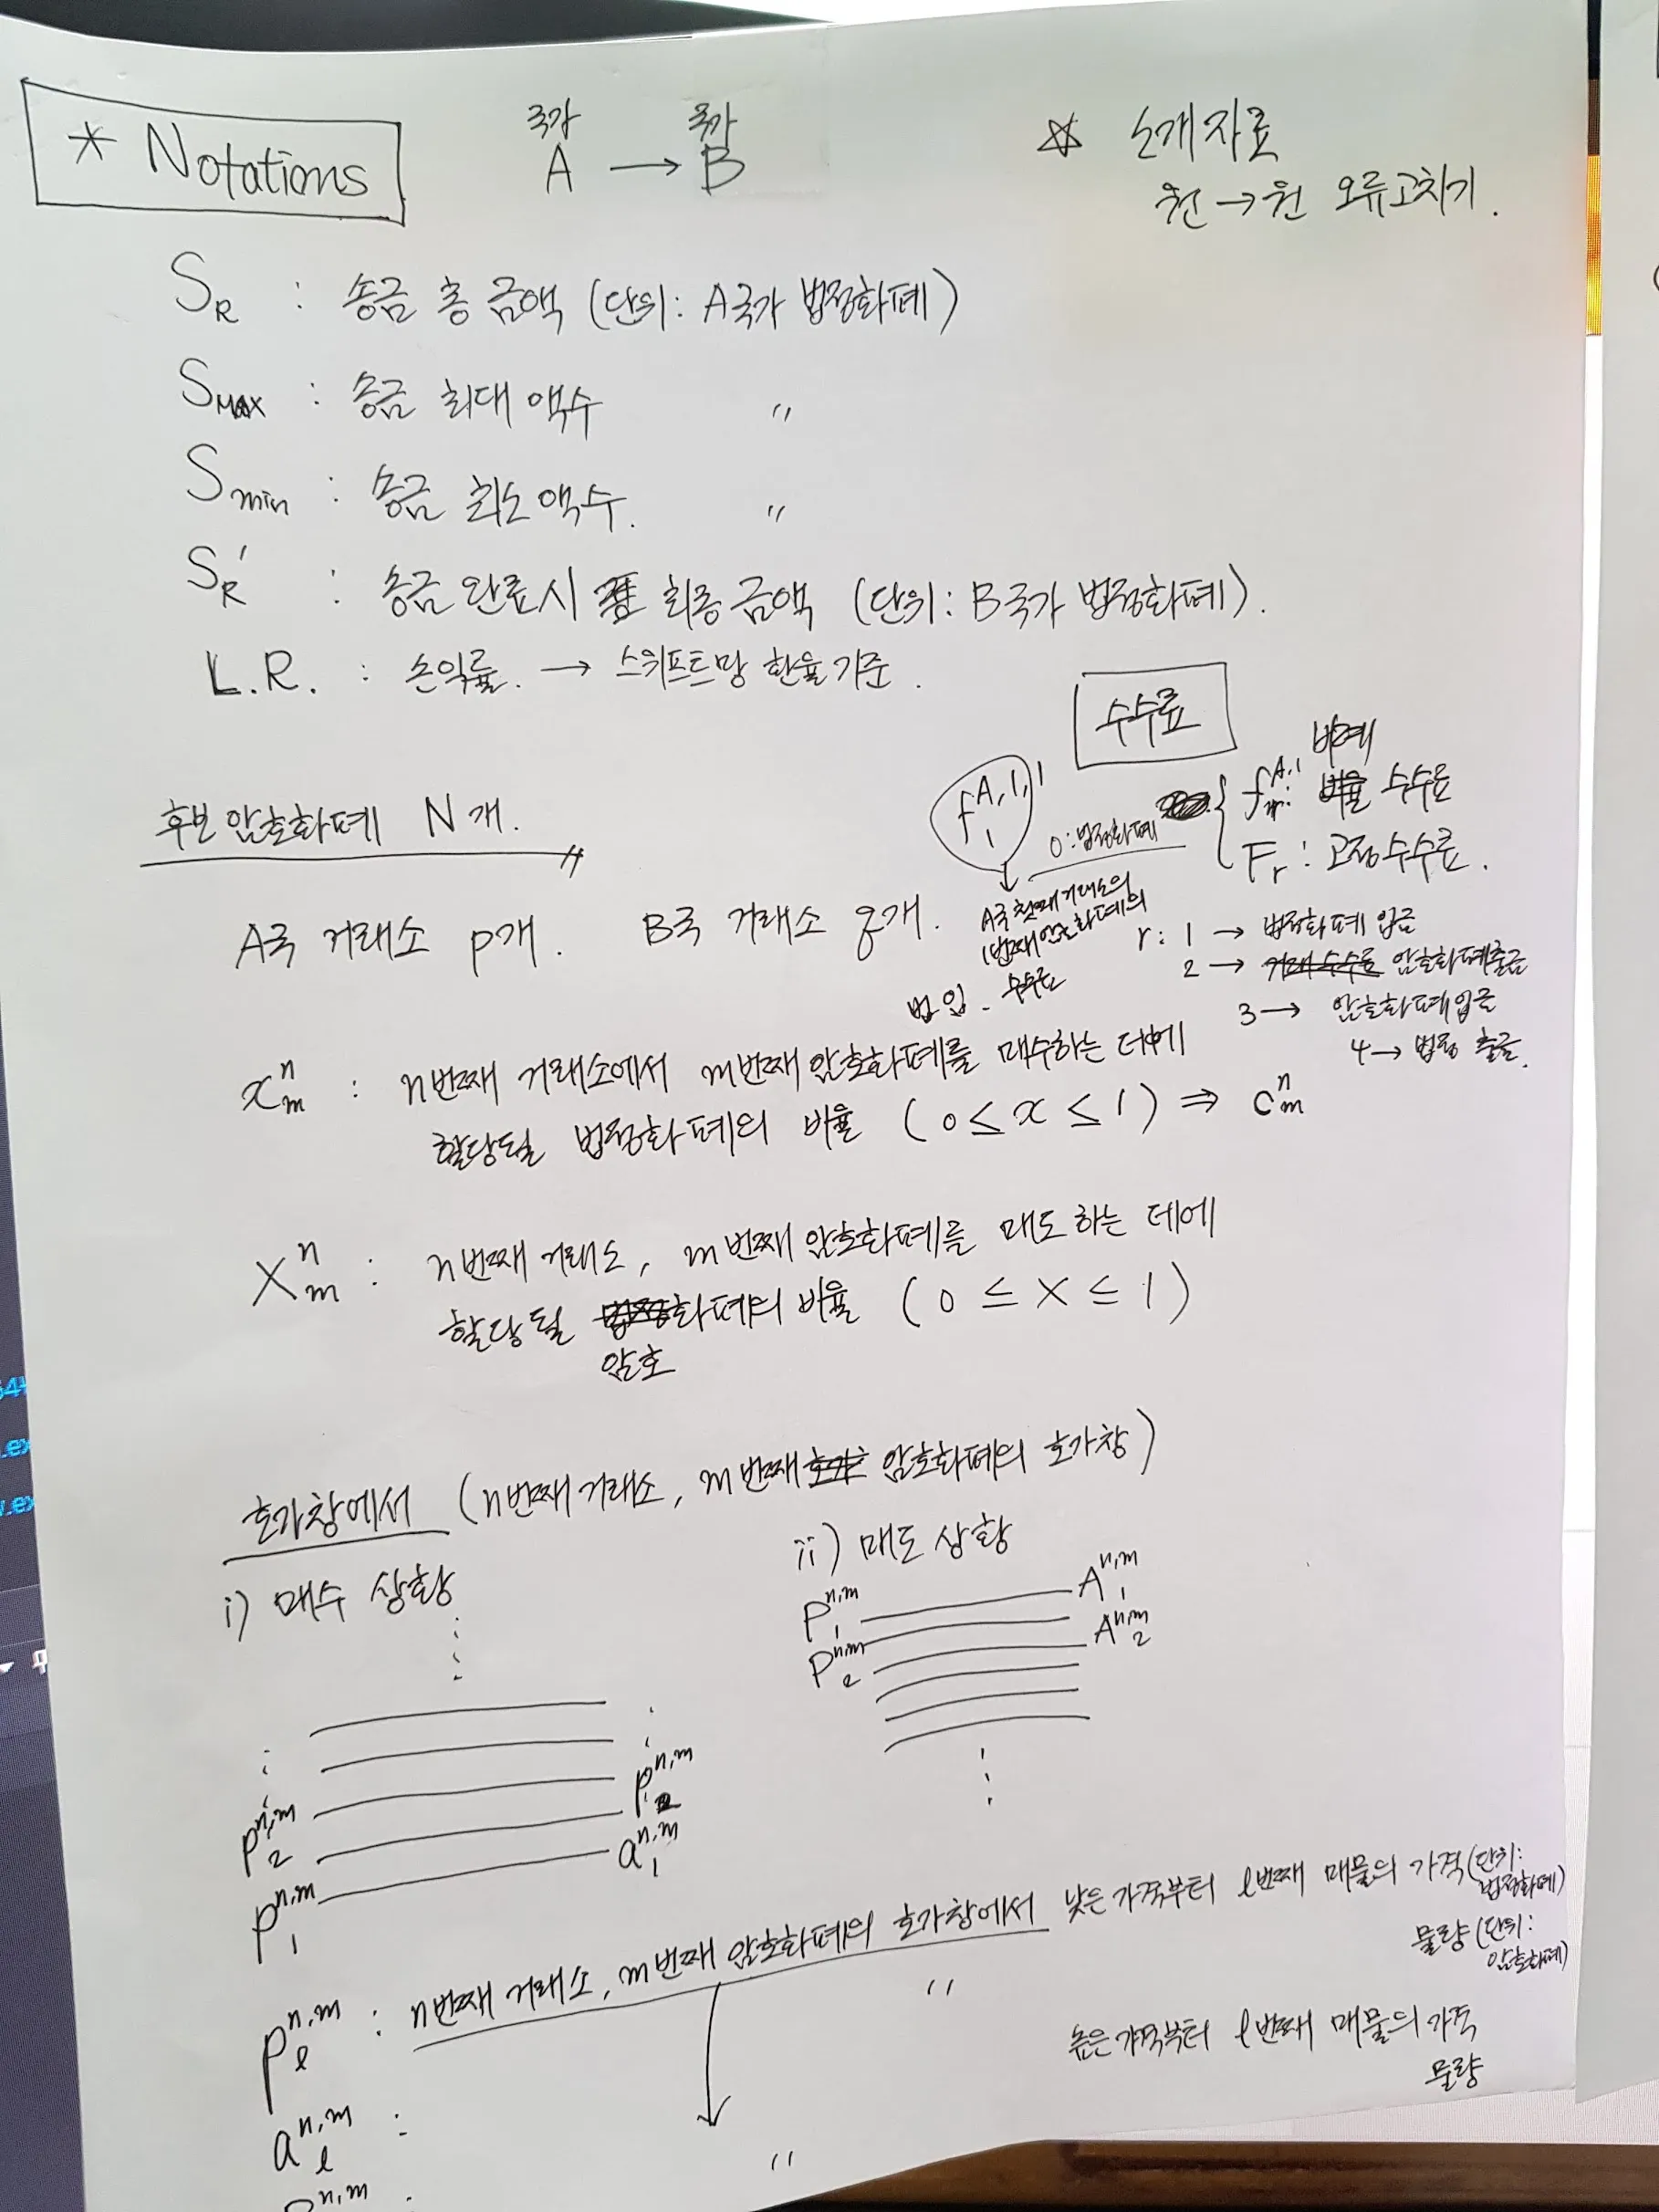 * Notations
국가 국가
A → B
☆ 소개자료
원 → 원 오류고치기.
S_R : 송금 총 금액 (단위: A국가 법정화폐)
S_MAX : 송금 최대 액수 〃
S_min : 송금 최소 액수. 〃
S_R' : 송금 완료시 최종 금액 (단위: B국가 법정화폐).
L.R. : 손익률. → 스위프트망 환율 기준.
수수료
f_1^{A,1,1}
0: 법정화폐
f_r^{A,1}: 비례 수수료
F_r : 고정수수료.
후보 암호화폐 N개.
A국 거래소 p개. B국 거래소 q개.
A국 첫째 거래소의
1번째 암호화폐의
법입. 수수료
r: 1 → 법정화폐 입금
2 → 거래 수수료 암호화폐출금
3 → 암호화폐입금
4 → 법정 출금.
x_m^n : n번째 거래소에서 m번째 암호화폐를 매수하는 데에
할당될 법정화폐의 비율 (0 ≤ x ≤ 1) ⇒ c_m^n
X_m^n : n번째 거래소, m번째 암호화폐를 매도하는 데에
할당될 법정화폐의 비율 (0 ≤ X ≤ 1)
암호
호가창에서 (n번째 거래소, m번째 호가 암호화폐의 호가창)
i) 매수 상황
ii) 매도 상황
P_1^{n,m} A_1^{n,m}
P_2^{n,m} A_2^{n,m}
p_2^{n,m} p_2^{n,m}
p_1^{n,m} a_1^{n,m}
p_ℓ^{n,m} : n번째 거래소, m번째 암호화폐의 호가창에서 낮은 가격부터 ℓ번째 매물의 가격 (단위: 법정화폐)
a_ℓ^{n,m} : 〃 물량 (단위: 암호화폐)
〃 높은 가격부터 ℓ번째 매물의 가격
물량